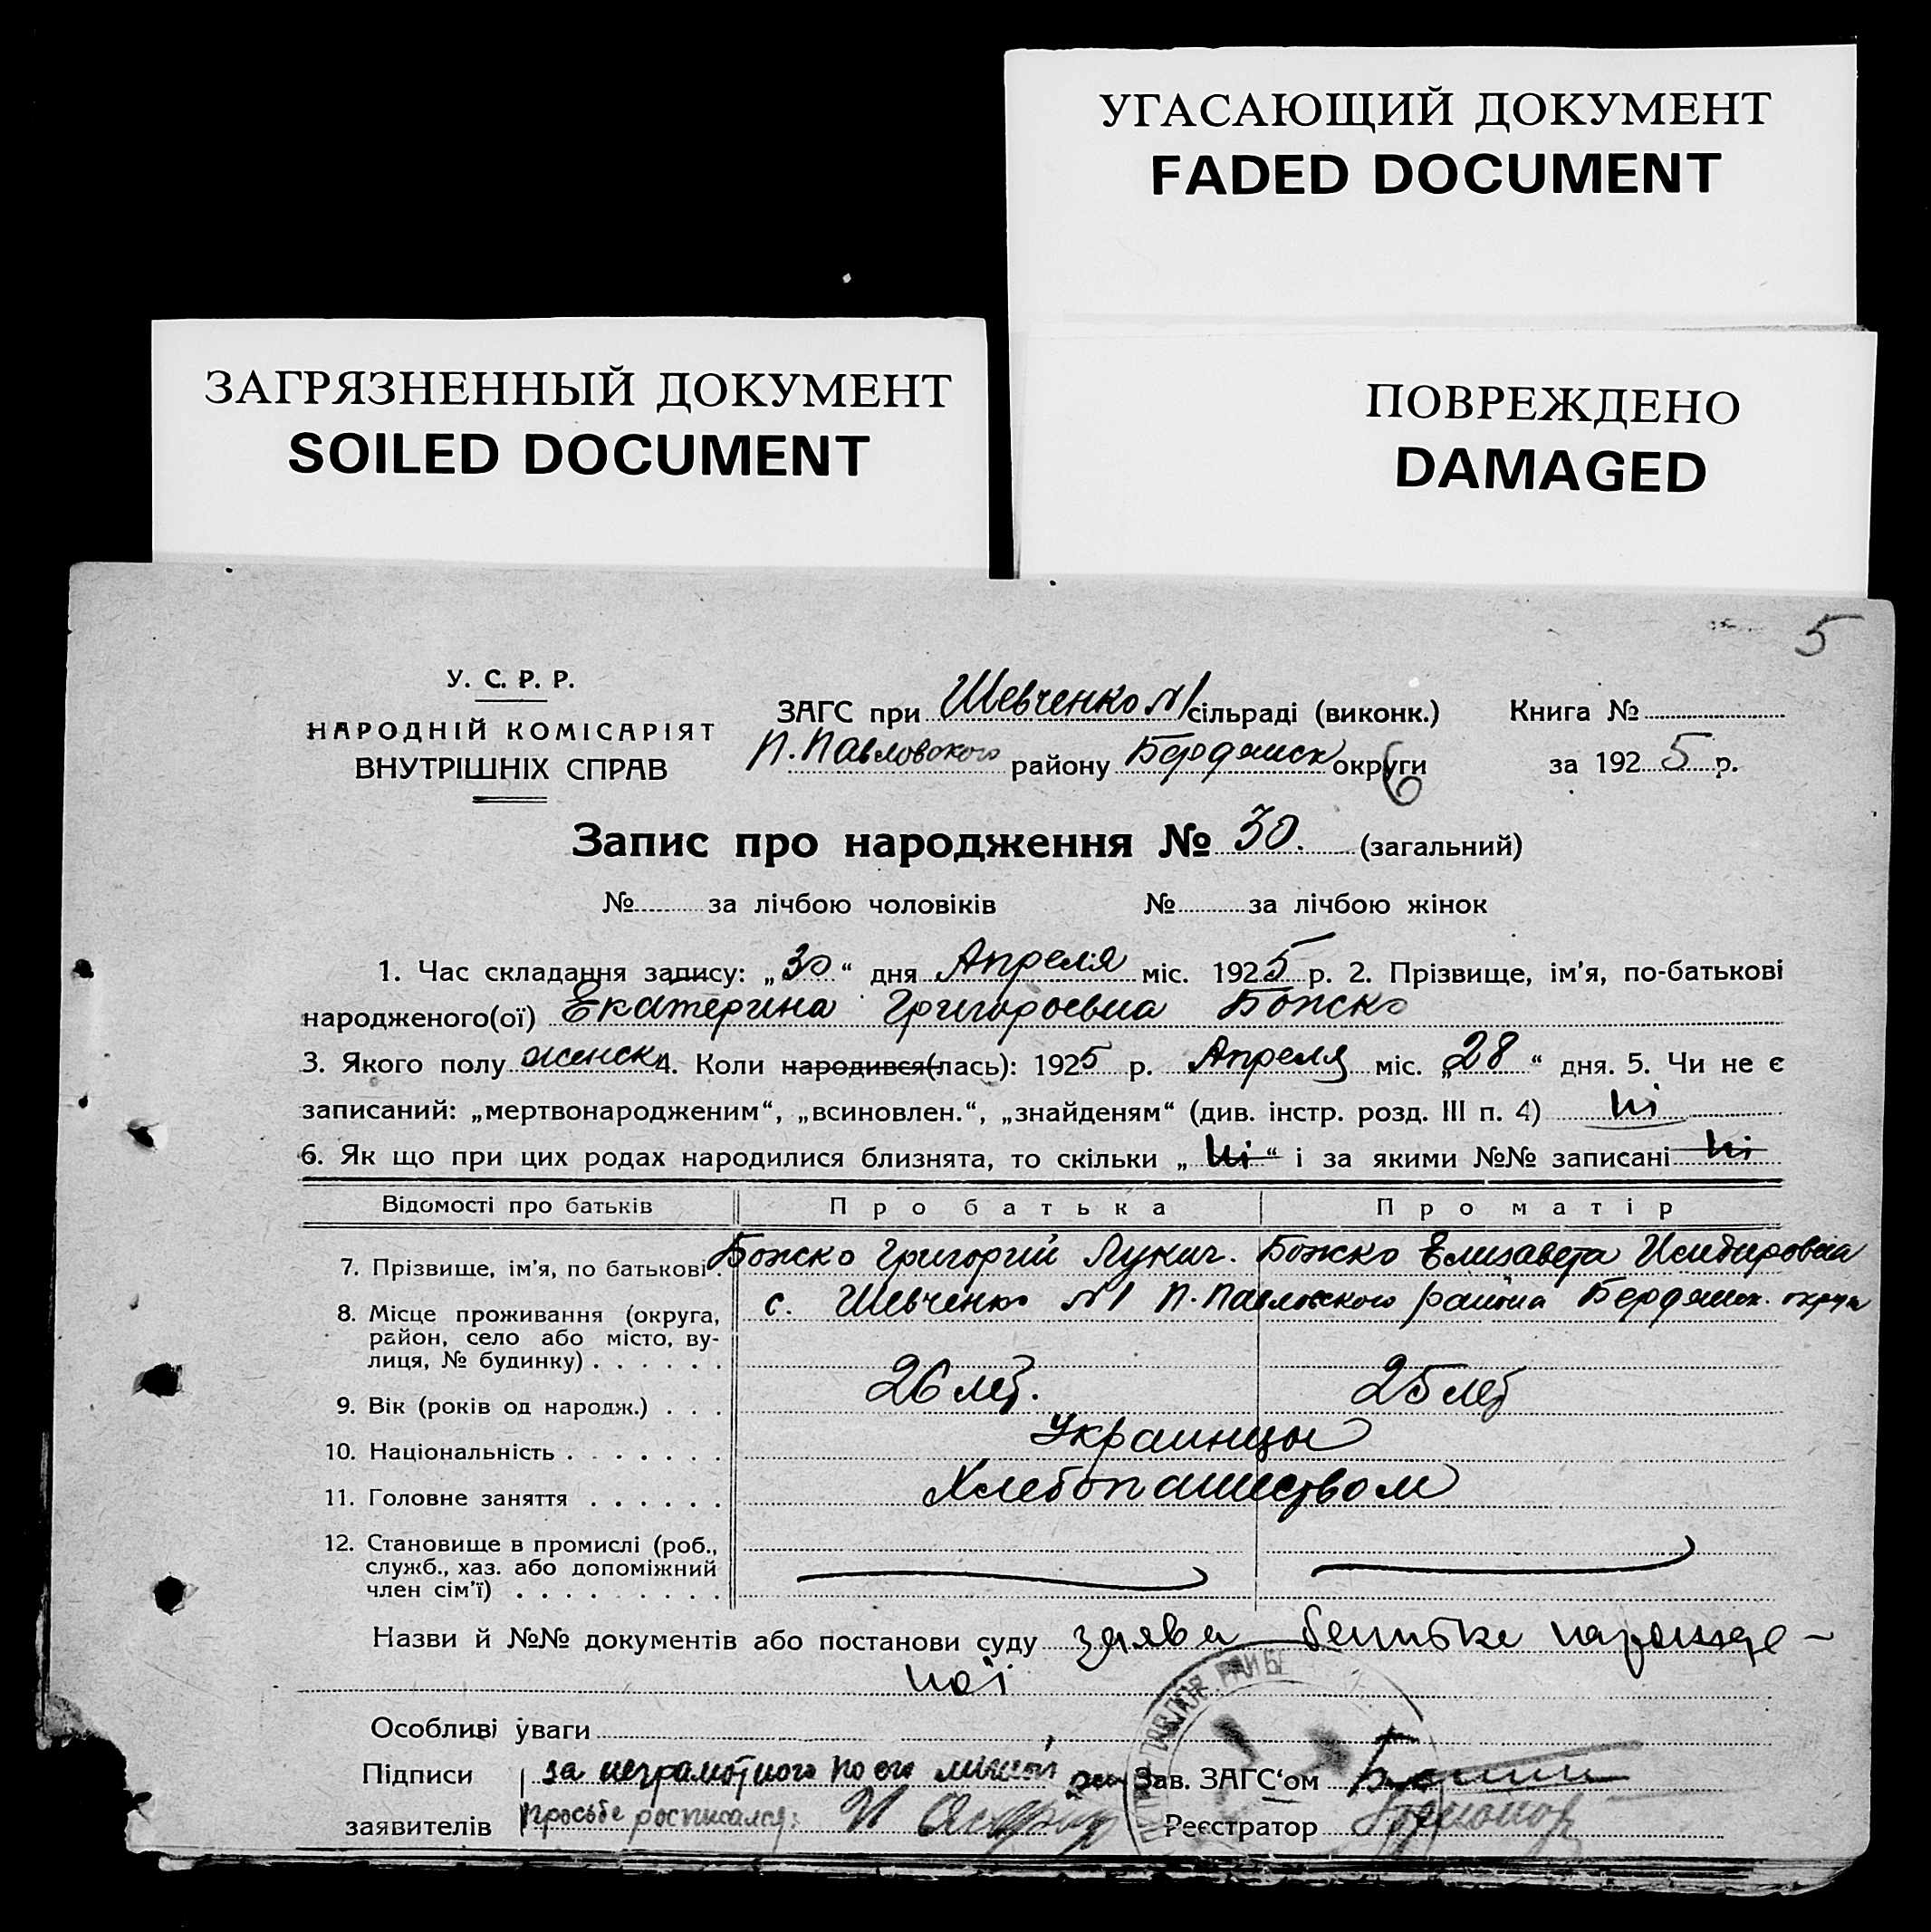 УГАСАЮЩИЙ ДОКУМЕНТ
FADED DOCUMENT
ЗАГРЯЗНЕННЫЙ ДОКУМЕНТ
SOILED DOCUMENT
ПОВРЕЖДЕНО
DAMAGED
5
У. С. Р. Р.
НАРОДНІЙ КОМІСАРІЯТ
ВНУТРІШНІХ СПРАВ
ЗАГС при Шевченко №1 сільраді (виконк.)
П. Павловского району Бердянск округи
Книга №
за 1925 р.
Запис про народження № 30. (загальний)
№ за лічбою чоловіків № за лічбою жінок
1. Час складання запису: „30“ дня Апреля міс. 1925 р. 2. Прізвище, ім'я, по-батькові
народженого(ої) Екатерина Григорьевна Божко
3. Якого полу женск 4. Коли народився(лась): 1925 р. Апреля міс. „28“ дня. 5. Чи не є
записаний: „мертвонародженим“, „всиновлен.“, „знайденям“ (див. інстр. розд. III п. 4) ні
6. Як що при цих родах народилися близнята, то скільки „ні“ і за якими №№ записані ні
Відомості про батьків Про батька Про матір
7. Прізвище, ім'я, по батькові. Божко Григорий Лукич. Божко Елизавета
8. Місце проживання (округа, с. Шевченко №1 П. Павловского района Бердянск. округи
район, село або місто, ву-
лиця, № будинку) . . . . . .
9. Вік (років од народж.) . . . 26 лет. 25 лет
10. Національність . . . . . . . Украинцы
11. Головне заняття . . . . . . Хлебопашеством
12. Становище в промислі (роб.,
служб., хаз. або допоміжний
член сім'ї) . . . . . . . . .
Назви й №№ документів або постанови суду заява батька народже-
ної
Особливі уваги
Підписи за неграмотного по его личной
заявителів просьбе росписался:
Зав. ЗАГС‘ом
Реєстратор